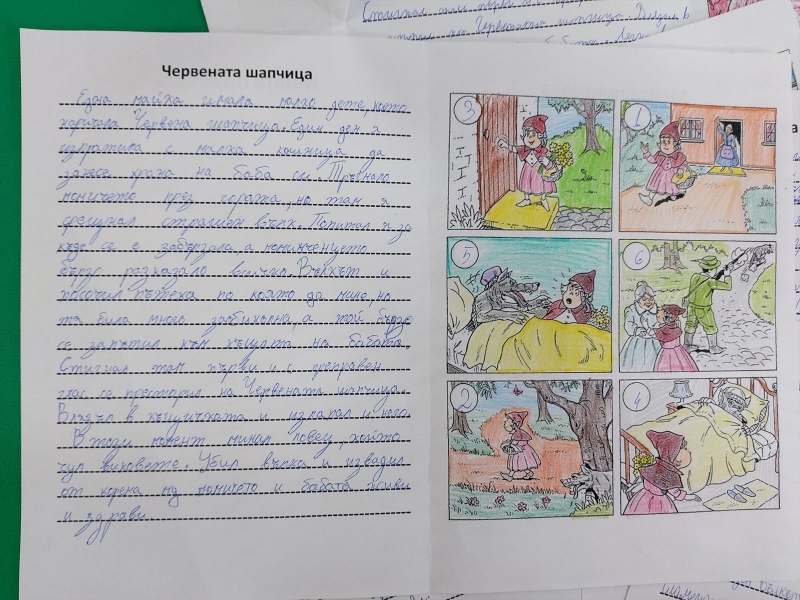 Стигнал там първи и с
Червената шапчица
Една майка имала малко дете, което
наричала Червена шапчица. Един ден я
изпратила с малка кошница да
занесе храна на баба си. Тръгнало
момичето през гората, но там я
срещнал страшен вълк. Попитал я за
къде се е забързала, а момиченцето
бързо разказало всичко. Вълкът и
посочил пътека по която да мине, но
тя била много заобиколна, а той бързо
се запътил към къщата на бабата.
Стигнал там първи и с преправен
глас се престорил на Червената шапчица.
Влязъл в къщичката и излапал и
В този момент минал ловец, който
чул виковете. Убил вълка и извадил
от корема му момичето и бабата живи
и здрави.
3
1
5
6
2
4